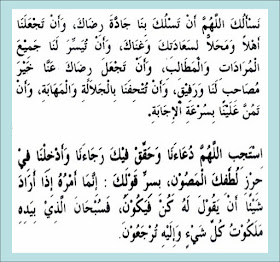 نَسْأَلُكَ اللَّهُمَّ أَنْ تَسْلُكَ بِنَا جَادَّةَ رِضَاكَ، وَأَنْ تَجْعَلَنَا
أَهْلاً وَمَحَلاًّ لِسَعَادَتِكَ وَغِنَاكَ، وَأَنْ تُيَسِّرَ لَنَا جَمِيْعَ
الْمُرَادَاتِ وَالْمَطَالِبِ، وَأَنْ تَجْعَلَ رِضَاكَ عَنَّا خَيْرَ
مُصَاحِبٍ لَنَا وَرَفِيْقٍ، وَأَنْ تُتْحِفَنَا بِالْجَلَالَةِ وَالْمَهَابَةِ، وَأَنْ
تَمُنَّ عَلَيْنَا بِسُرْعَةِ الْإِجَابَةِ.
اسْتَجِبِ اللَّهُمَّ دُعَاءَنَا وَحَقِّقْ فِيْكَ رَجَاءَنَا وَأَدْخِلْنَا فِيْ
حِرْزِ لُطْفِكَ الْمَصُوْنِ، بِسِرِّ قَوْلِكَ : إِنَّمَا أَمْرُهُ إِذَا أَرَادَ
شَيْئًا أَنْ يَقُوْلَ لَهُ كُنْ فَيَكُوْنُ، فَسُبْحَانَ الَّذِيْ بِيَدِهِ
مَلَكُوْتُ كُلِّ شَيْءٍ وَإِلَيْهِ تُرْجَعُوْنَ.